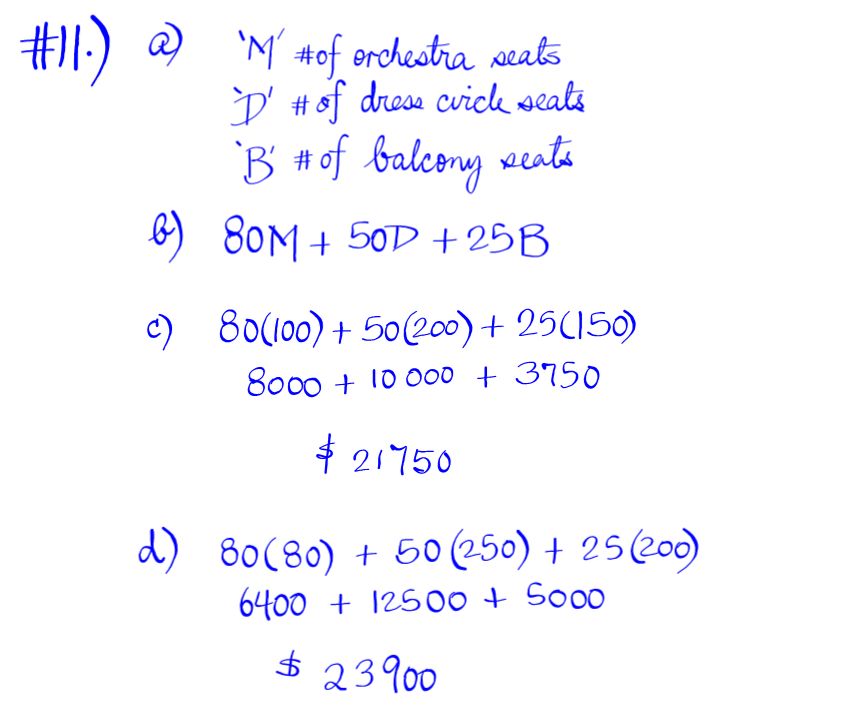 #11.) a) 'M' # of orchestra seats
'D' # of dress circle seats
'B' # of balcony seats
b) 80M + 50D + 25B
c) 80(100) + 50(200) + 25(150)
8000 + 10 000 + 3750
$ 21750
d) 80(80) + 50(250) + 25(200)
6400 + 12500 + 5000
$ 23900